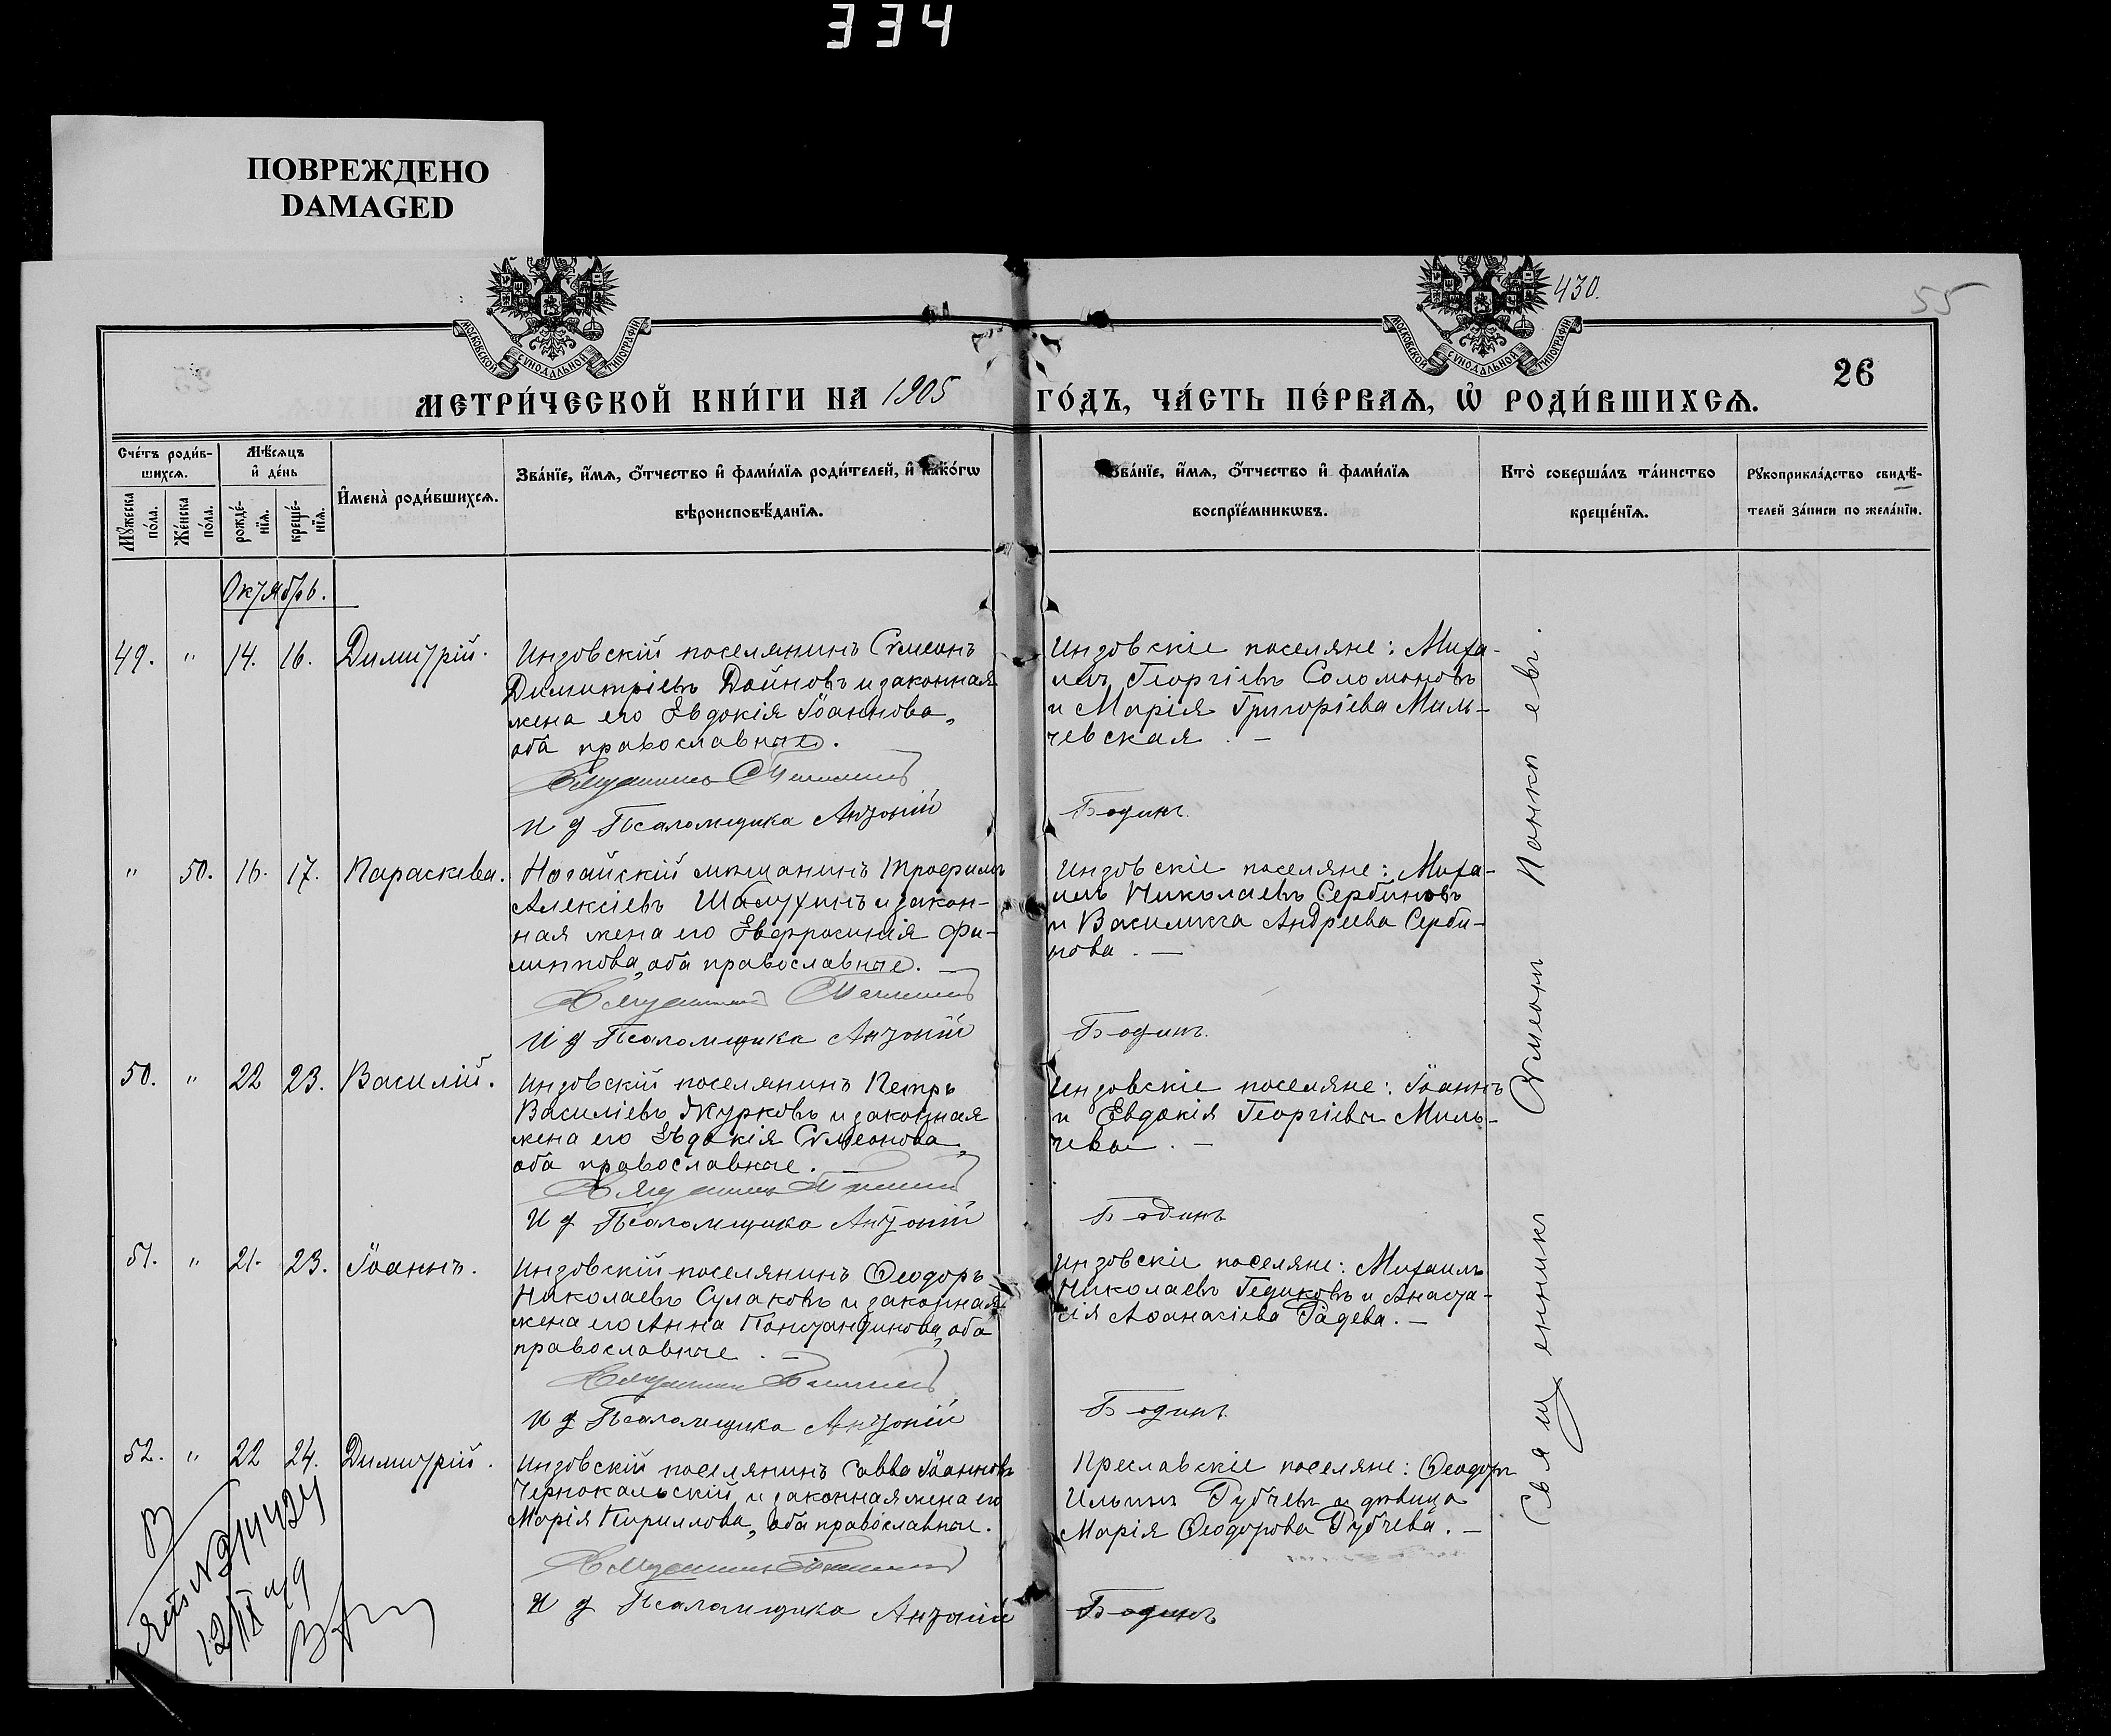 334
ПОВРЕЖДЕНО
DAMAGED
МОСКОВСКОЙ СѴНОДАЛЬНОЙ ТИПОГРАФІИ
МОСКОВСКОЙ СѴНОДАЛЬНОЙ ТИПОГРАФІИ
430.
55
26
МЕТРИ́ЧЕСКОЙ КНИ́ГИ НА 1905 ГО́ДЪ, ЧА́СТЬ ПЕ́РВАѦ, Ѡ҆ РОДИ́ВШИХСѦ.
Сче́тъ роди́в-
шихсѧ.
Мꙋ́жеска по́ла.
Же́нска по́ла.
Мѣ́сѧцъ
и҆ де́нь
рожде́-
нїѧ.
креще́-
нїѧ.
И҆мена̀ роди́вшихсѧ.
Зва́нїе, и҆́мѧ, ѻ҆́тчество и҆ фами́лїѧ роди́телей, и҆ како́гѡ
вѣроисповѣ́данїѧ.
Зва́нїе, и҆́мѧ, ѻ҆́тчество и҆ фами́лїѧ
воспрїе́мникѡвъ.
Кто̀ соверша́лъ та́инство
креще́нїѧ.
Рꙋкоприкла́дство свидѣ́-
телей за́писи по жела́нїю.
Октябрь.
49. " 14. 16. Димитрій.
Индовскій поселянинъ Сѵмеонъ
Димитріевъ Дойновъ и законная
жена его Евдокія Іоаннова,
оба православные.
И д Псаломщика Антоній Бодинъ.
Индовскіе поселяне: Миха-
илъ Георгіевъ Соломоновъ
и Марія Григоріева Миль-
чевская. —
" 50. 16. 17. Параскева.
Ногайскій мѣщанинъ Трофимъ
Алексіевъ Шалухинъ и закон-
ная жена его Евфросинія Фи-
липпова, оба православные. —
И д Псаломщика Антоній Бодинъ.
Индовскіе поселяне: Миха-
илъ Николаевъ Сербиновъ
и Василикга Андреева Серби-
нова. —
50. " 22 23. Василій.
Индовскій поселянинъ Петръ
Василіевъ Журковъ и законная
жена его Евдокія Сѵмеонова,
оба православные. —
И д Псаломщика Антоній Бодинъ
Индовскіе поселяне: Іоаннъ
и Евдокія Георгіевы Миль-
чевы. —
51. " 21. 23. Іоаннъ.
Индовскій поселянинъ Ѳеодоръ
Николаевъ Сулаковъ и законная
жена его Анна Константинова, оба
православные. —
И д Псаломщика Антоній Бодинъ.
Индовскіе поселяне: Михаилъ
Николаевъ Гедиковъ и Анаста-
сія Аѳанасіева Радева. —
52. " 22 24. Димитрій.
Индовскій поселянинъ Савва Іоанновъ
Чернокальскій и законная жена его
Марія Кириллова, оба православные.
И д Псаломщика Антоній Бодинъ
Преславскіе поселяне: Ѳеодоръ
Ильинъ Губчевъ и дѣвица
Марія Ѳеодорова Губчева. —
Священникъ Сѵмеонъ Панкѣевъ.